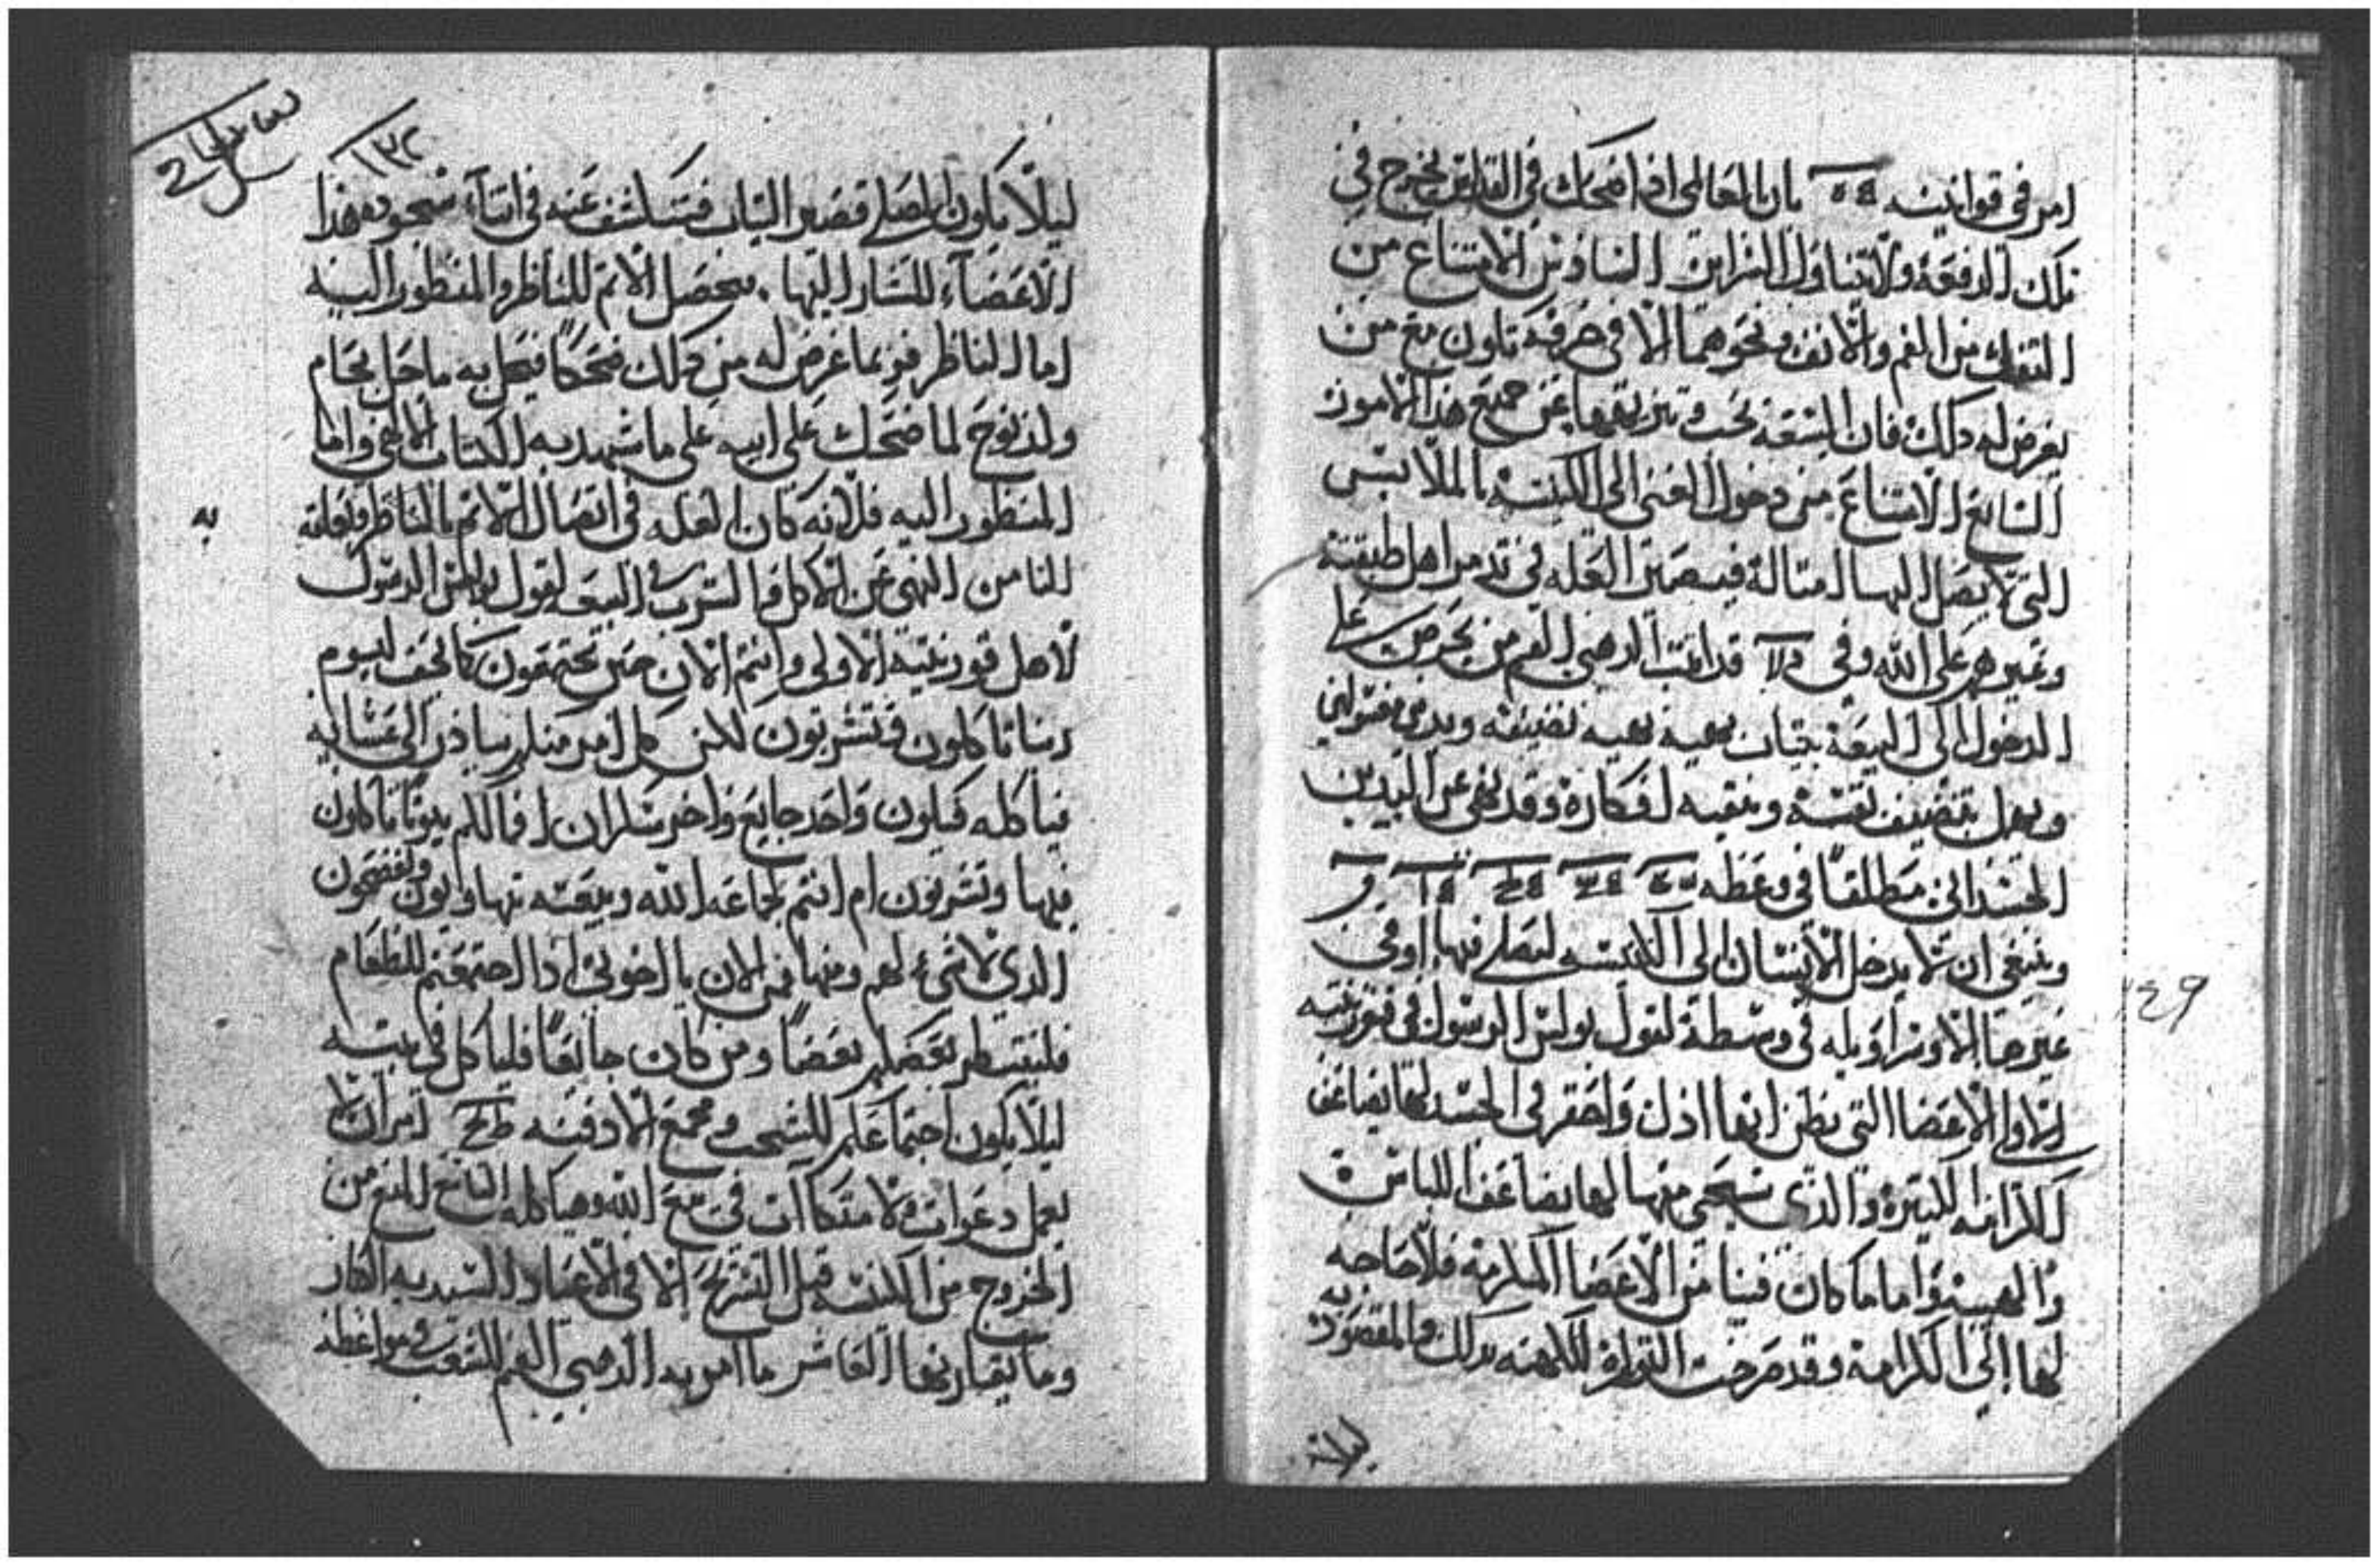 امر في قوانينه بان العالمي اذا ضحك في القداس يخرج في
تلك الدفعة ولا يتناول القرابين السادس الامتناع من
التفل من الفم والانف ونحوهما الا في خرقة تكون مع من
يعرض له ذلك فان البيعة يجب تنزيهها عن جميع هذه الامور
السابع الامتناع من دخول الغني الى الكنيسة بالملابس
التي لا يصل اليها امثاله فيصير العله في تذمر اهل طبقته
وغيرهم على الله وفي قد امر الدهبي الفم من يحرص على
الدخول الى البيعة بثياب بهية نضيفه
ويهمل تنضيف نفسه وينقيه افكاره وقد نهى عن التزين
الجسداني مطلقًا في وعظه
وينبغي ان لا يدخل الانسان الى الكنيسه ليصلي فيها او في
غيرها الا وسراويله في وسطة لقول بولس الرسول في قورنتيه
الاولى الاعضا التي يظن انها اذل واحقر في الجسد لها يضاعف
الكرامه الكثيرة والذي نستحي منها لها يضاعف اللباس
والهيبة واما ما كان فينا من الاعضا المكرمة فلا حاجه
لها الى الكرامة وقد صرحت التوراة للكهنه بذلك والمقصود به
ليلا
١٣٢
ليلا يكون المصلي قصير الثياب فتكشف عنه في اثناء سجوده هذا
الاعضاء المشار اليها. فيحصل الاثم للناظر والمنظور اليه
اما الناظر فربما عرض له من ذلك ضحكًا فيحل به ما حل بحام
ولد نوح لما ضحك على ابيه على ما شهد به الكتاب الالهي واما
المنظور اليه فلانه كان العله في اتصال الاثم بالناظر وتعلقه
به
الثامن النهي عن الاكل والشرب في البيعه لقول بولس الرسول
لاهل قورنتيه الاولى وانتم الان حين تجتمعون كما يحق ليوم
ربنا تاكلون وتشربون لكن كل امر منكم يبادر الى عشايه
فياكله فيكون واحد جايع واخر سكران افما لكم بيوتًا تاكلون
فيها وتشربون ام انتم لجماعة الله وبيعته تتهاونون وتفضحون
الذي لا شيء لهم ومنها فمن الان يا اخوتي اذا اجتمعتم للطعام
فلينتظر بعضكم بعضًا ومن كان جايعًا فلياكل في بيته
ليلا يكون اجتماعكم للشجب ومجمع اللادقيه امر ان لا
يعمل دعوات ولا متكاآت في بيع الله وهياكله التاسع المنع من
الخروج من الكنيسه قبل التسريح الا في الاعياد السيديه الكبار
وما يقاربها العاشر ما امر به الدهبي الفم للشعب في مواعظه